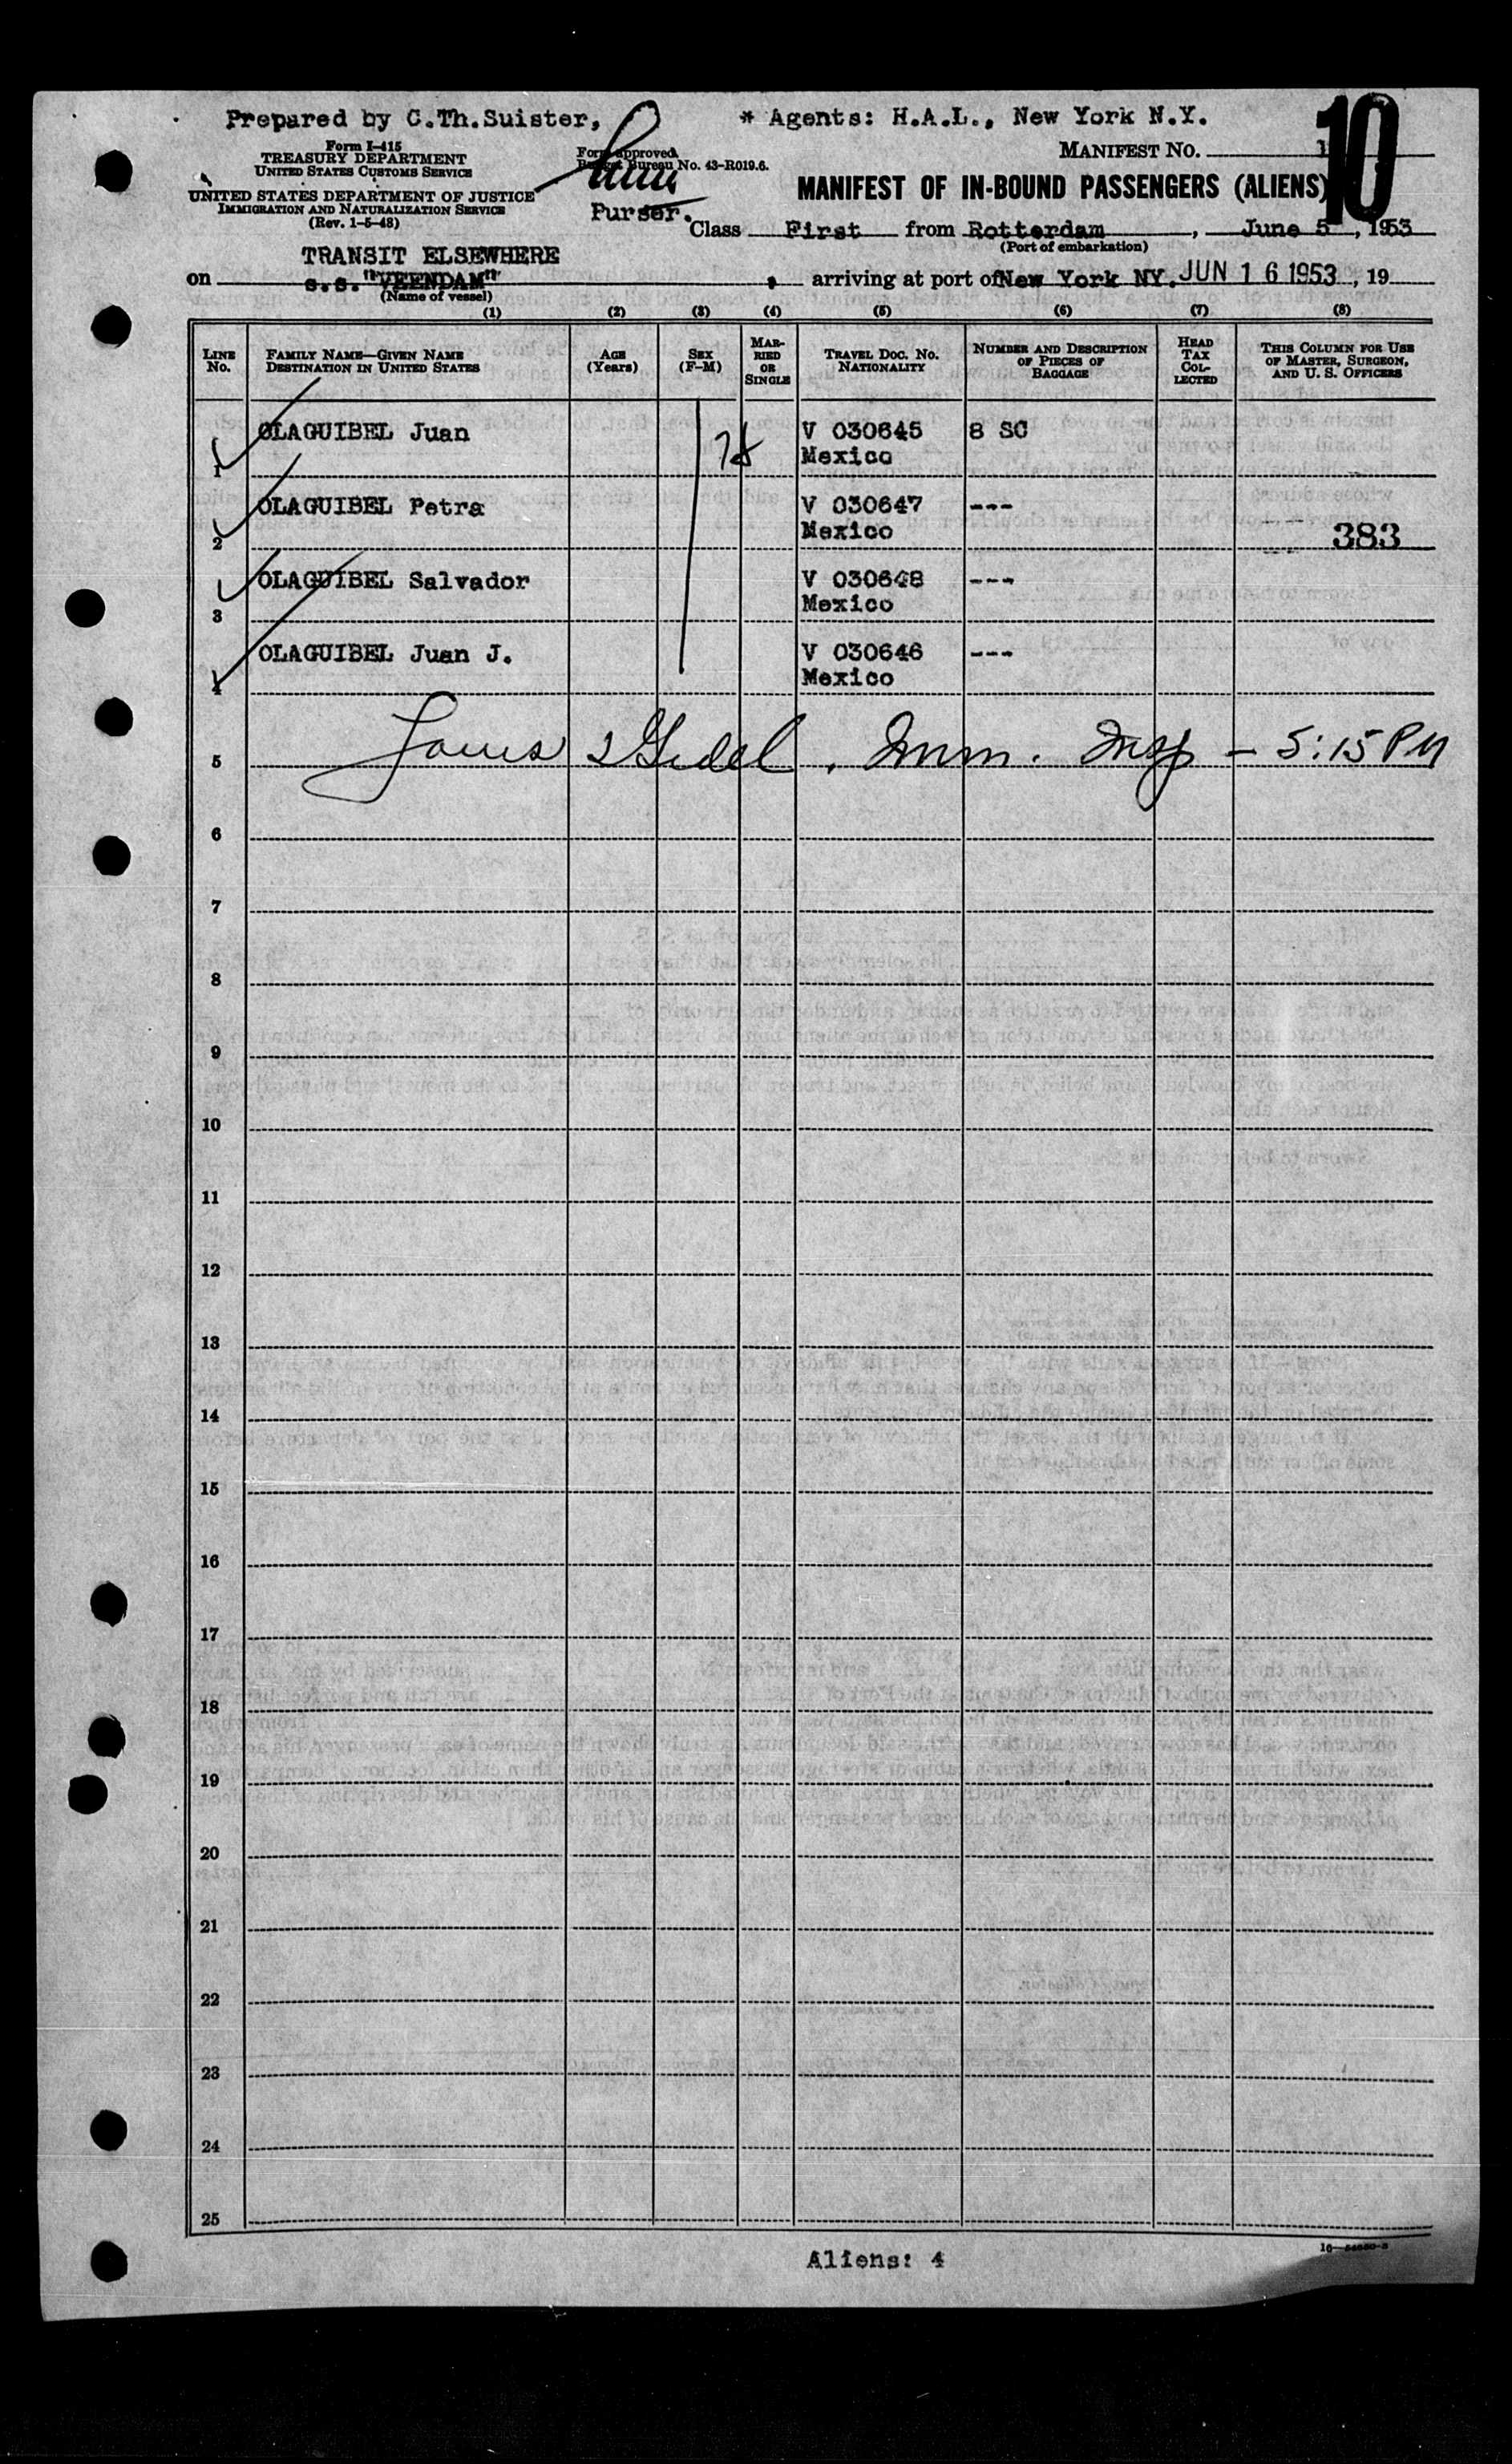 Prepared by C.Th.Suister, * Agents: H.A.L., New York N.Y.
10
Form I-415
TREASURY DEPARTMENT
UNITED STATES CUSTOMS SERVICE
UNITED STATES DEPARTMENT OF JUSTICE
IMMIGRATION AND NATURALIZATION SERVICE
(Rev. 1-5-48)
Form approved.
Budget Bureau No. 43-R019.6.
Purser.
MANIFEST NO. 1
MANIFEST OF IN-BOUND PASSENGERS (ALIENS)
Class First from Rotterdam, June 5, 1953
(Port of embarkation)
TRANSIT ELSEWHERE
on s.s. "VEENDAM", arriving at port of New York NY. JUN 16 1953, 19
(Name of vessel)
(1) (2) (3) (4) (5) (6) (7) (8)
LINE NO. FAMILY NAME—GIVEN NAME DESTINATION IN UNITED STATES AGE (YEARS) SEX (F-M) MARRIED OR SINGLE TRAVEL DOC. NO. NATIONALITY NUMBER AND DESCRIPTION OF PIECES OF BAGGAGE HEAD TAX COLLECTED THIS COLUMN FOR USE OF MASTER, SURGEON, AND U. S. OFFICERS
1 OLAGUIBEL Juan V 030645 8 SC
Mexico
2 OLAGUIBEL Petra V 030647 ---
Mexico 383
3 OLAGUIBEL Salvador V 030648 ---
Mexico
4 OLAGUIBEL Juan J. V 030646 ---
Mexico
5 Imm. Insp - 5:15 PM
6
7
8
9
10
11
12
13
14
15
16
17
18
19
20
21
22
23
24
25
Aliens: 4